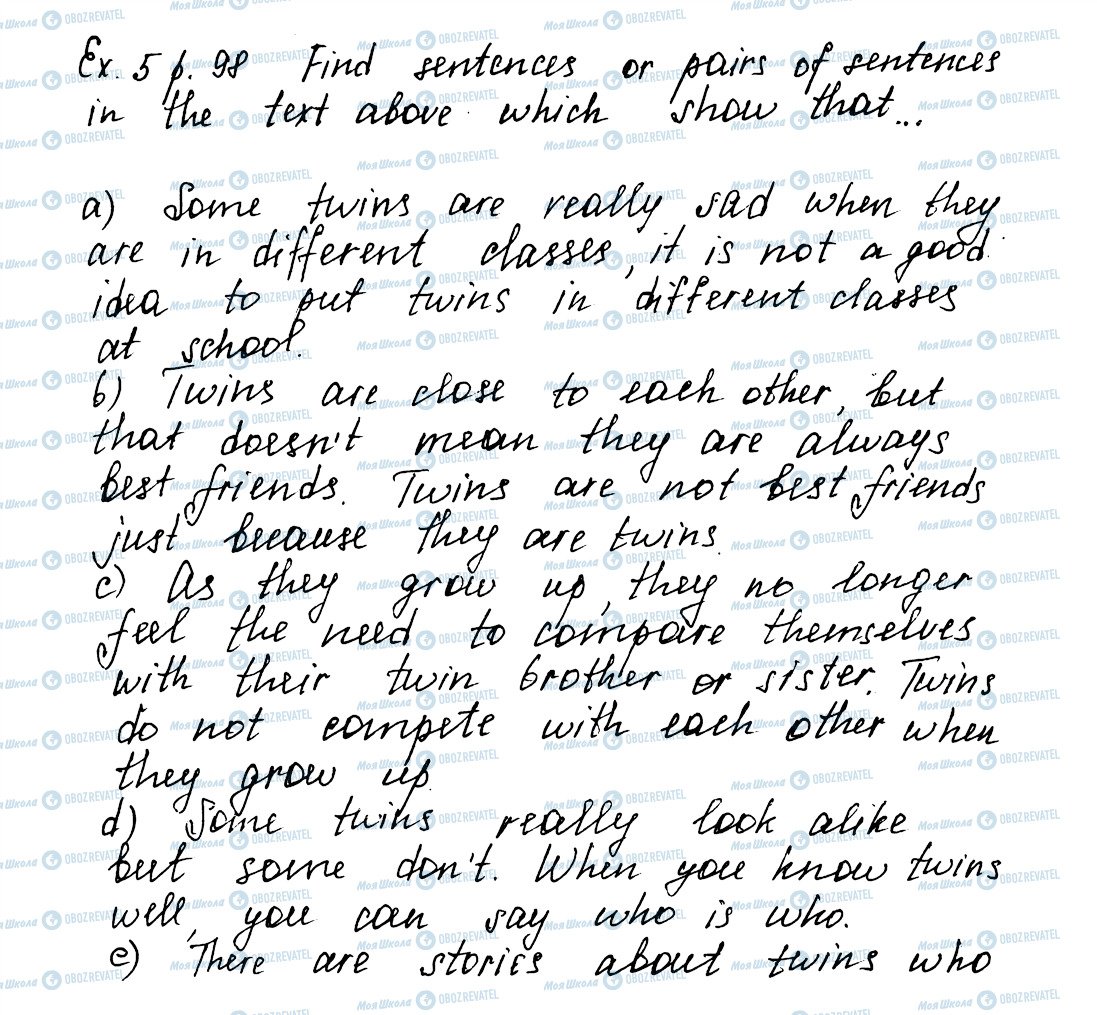 Ex. 5 p. 98 Find sentences or pairs of sentences
in the text above which show that...
a) Some twins are really sad when they
are in different classes, it is not a good
idea to put twins in different classes
at school.
b) Twins are close to each other, but
that doesn't mean they are always
best friends. Twins are not best friends
just because they are twins.
c) As they grow up, they no longer
feel the need to compare themselves
with their twin brother or sister. Twins
do not compete with each other when
they grow up.
d) Some twins really look alike
but some don't. When you know twins
well, you can say who is who.
e) There are stories about twins who